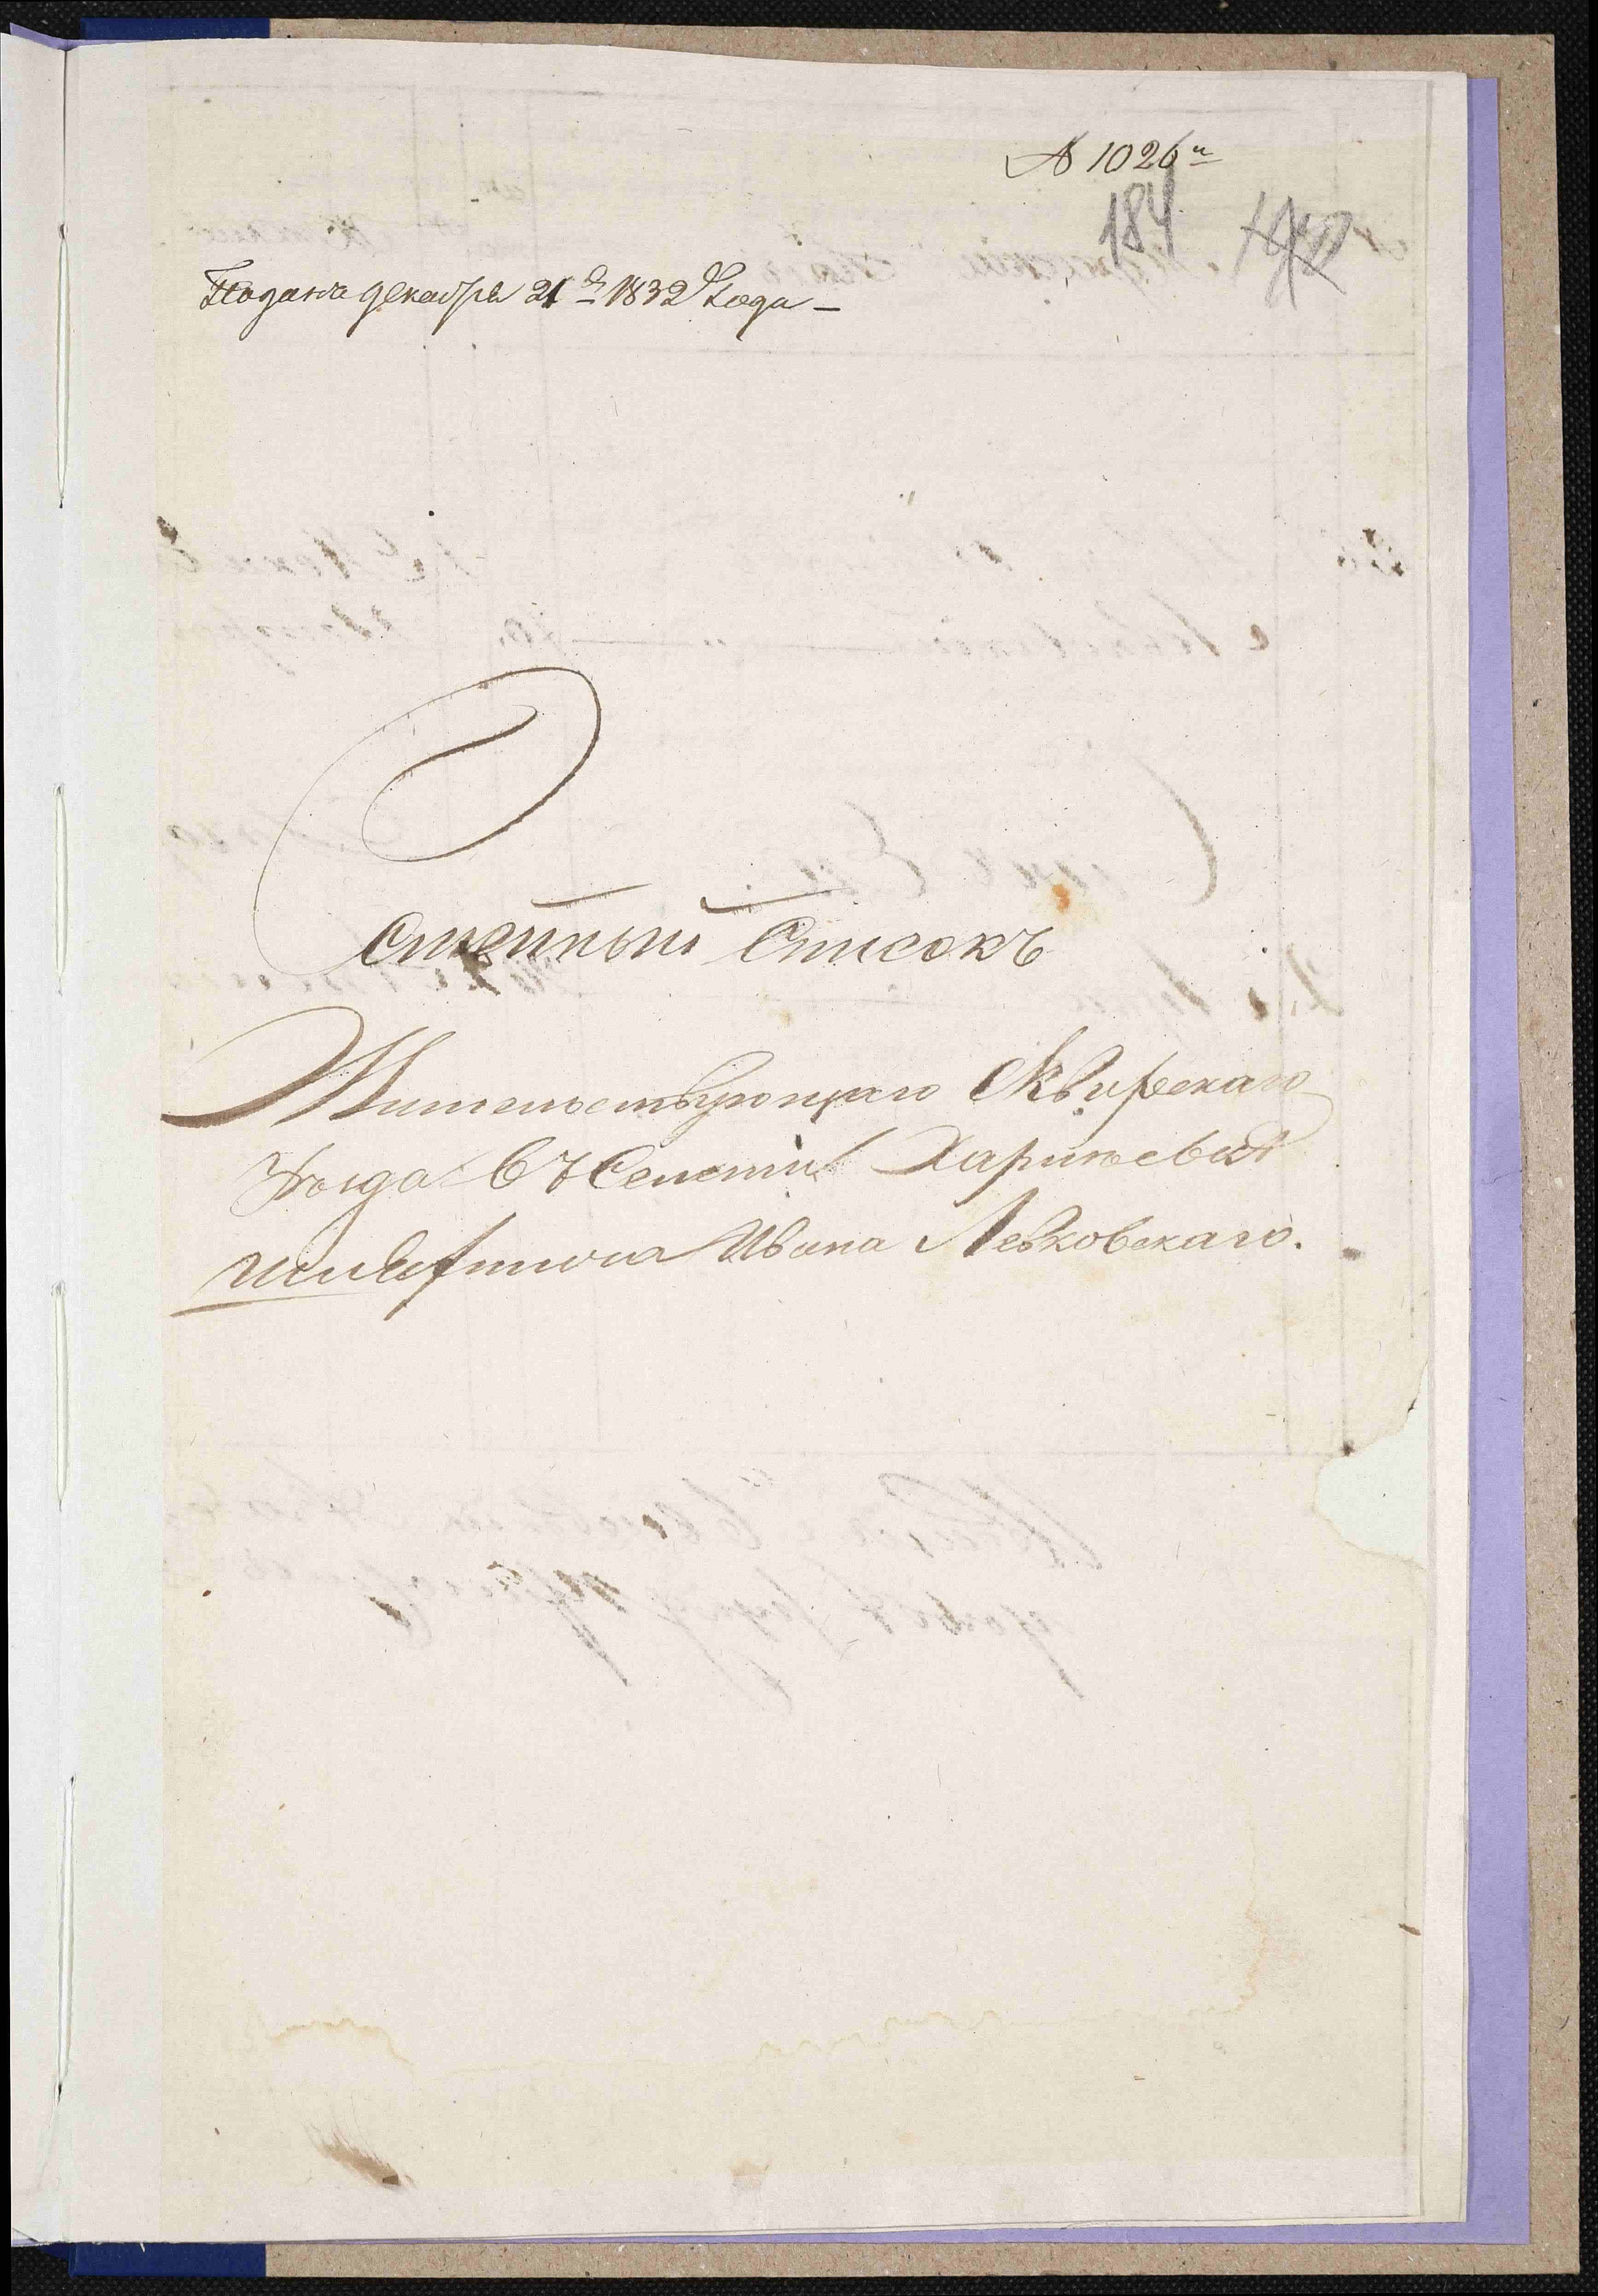 № 1026й
184
Подана декабря 21 д 1832 Года —
Семейный Списокъ
Жительствующаго Сквирскаго
Уезда въ Селении
шляхтича Ивана Левковскаго.